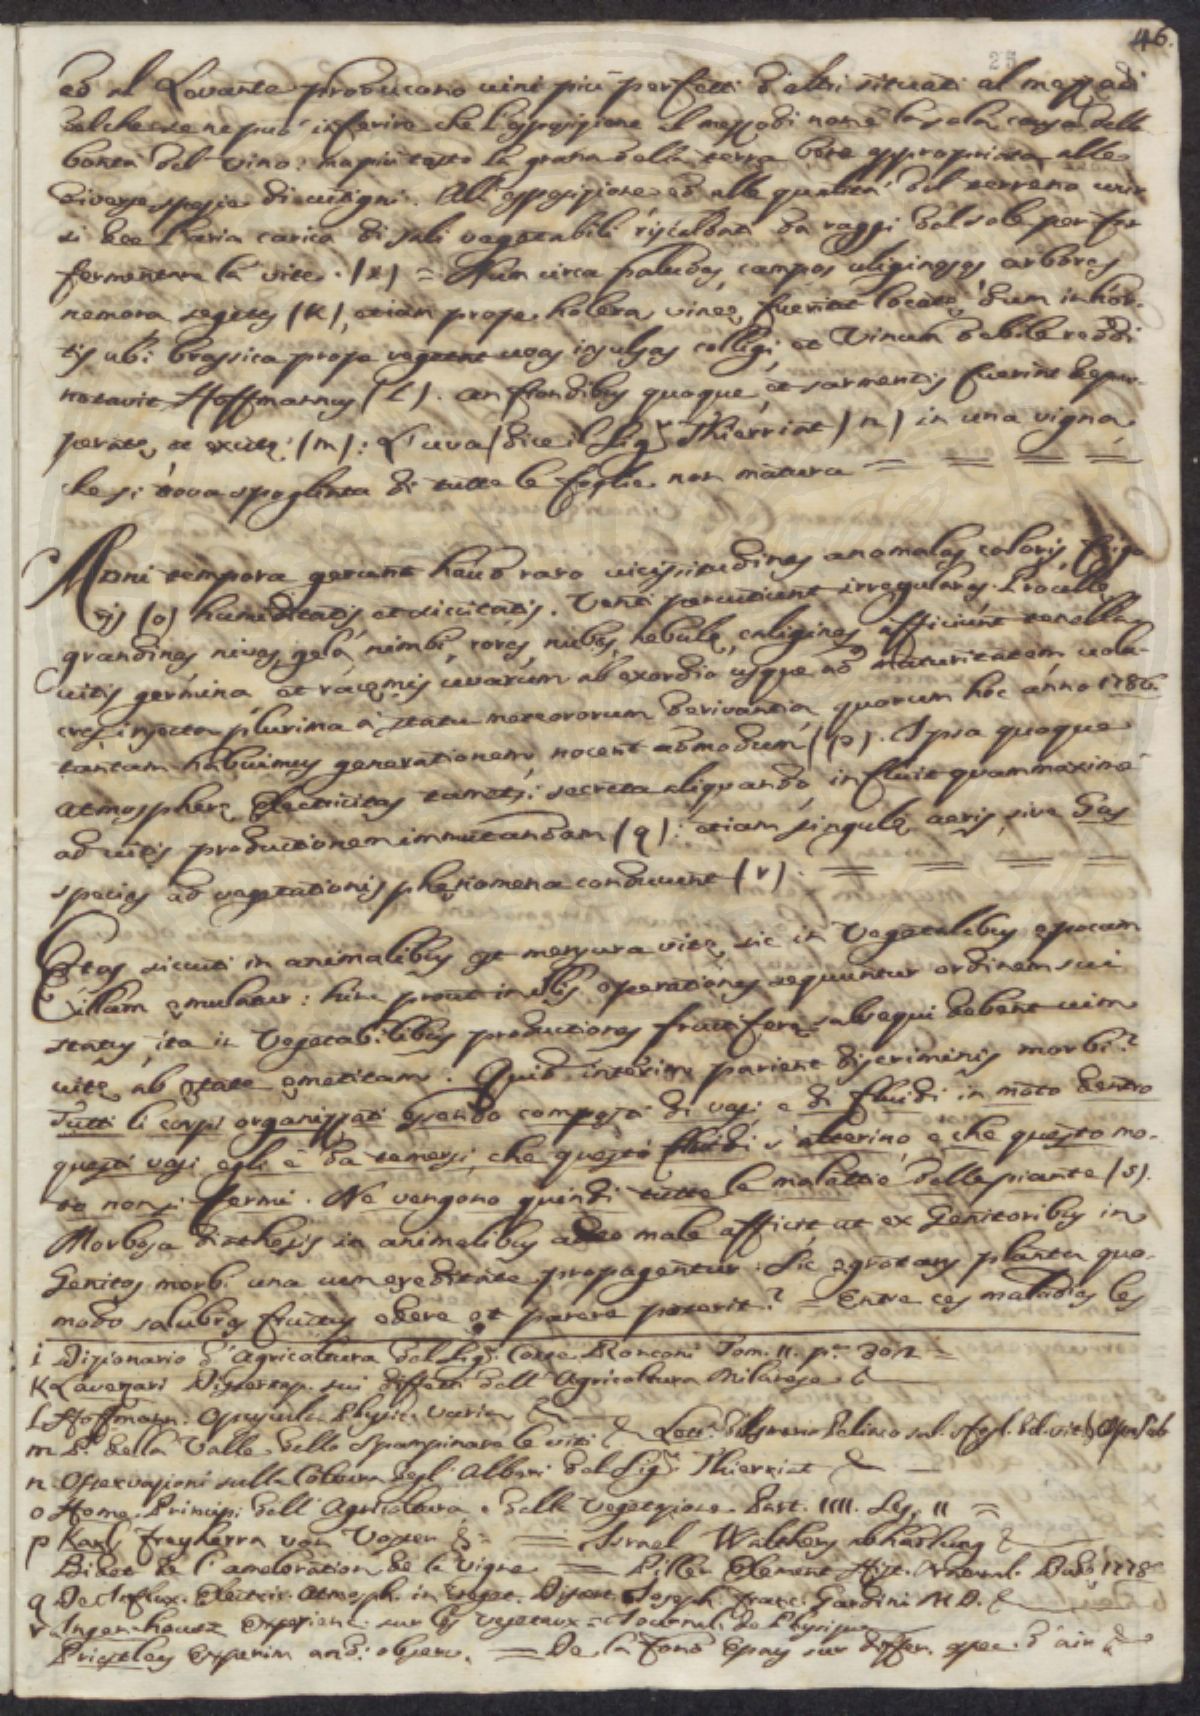 46.
25
ed al Levante producono vini più perfetti d'altri situati al mezzodì
dal che se ne può inferire che l'esposizione al mezzodì non è la sola causa della
bontà del vino: ma più tosto la grana della terra bene appropriata alle
diverse spezie di vitigni. All'esposizione ed alle qualità del terreno unir
si dee l'aria carica di sali vegetabili riscaldata da raggi del sole per far
fermentare la vite. (i) = Num circa paludes, campos uliginosos arbores
nemora segetes (K), etiam prope holera vineę fuerint locatę, dum in hor-
tis ubi brassica prope vegetat uvas insulsas colligi, et Vinum debile reddi
notavit Hoffmannus (L). an frondibus quoque, et sarmentis fuerint depau-
peratę, et exutę (m): L'uva (dice il Sigr Thierriat) (n) in una vigna,
che si trova spogliata di tutte le foglie non matura = = = =
Anni tempora gerunt haud raro vicissitudines anomalas caloris, frigo-
ris (o) humiditatis et siccitatis. Venti percutiunt irregulares. Procellę
grandines nives, gelu, nimbi, rores, nubes, nebulę, caligines afficiunt tenella
vitis germina, et racemis uvarum ab exordio usque ad maturitatem, vola-
cres, insecta plurima a statu meteororum derivantia, quorum hoc anno 1786.
tantam habuimus generationem, nocent admodum (p). Ipsa quoque
Atmospherę Electricitas tametsi secreta aliquando, influit quammaxime
ad vitis productionem immutandam (q): etiam singulę aeris, sive Gas
species ad vegetationis phęnomena conducunt (r). = = = =
Ętas sicuti in animalibus est mensura vitę, sic in Vegetalibus epocam
illam ęmulatur: hinc prout in illis operationes sequuntur ordinem sui
status, ita in Vegetabilibus productiones fructiferę subsequi debent vim
vitę ab ętate emetitam. Quid interim parient discriminis morbi?
Tutti li corpi organizzati essendo composti di vasi, e di fluidi in moto dentro
questi vasi, egli è da temersi, che questi fluidi s'alterino, e che questo mo-
to non si fermi. Ne vengono quindi tutte le malattie delle piante (s).
Morbosa diathesis in animalibus adeo male afficit, ut ex Genitoribus in
Genitos morbi una cum ereditate propagentur. Sic ęgrotans planta quo-
modo salubres fructus edere et parere poterit? = Entre ces maladies les
i Dizionario d'Agricoltura del Sigr. Conte Ronconi Tom. II. p.
K Lavezari Dissertaz. sui difetti dell'Agricoltura Milanese
L Hoffmann. Opuscula Physic. Varia
m P. della Valle dello Spampinare le viti
n Osservazioni sulla Coltura degl'Alberi del Sigr. Thierriat
o Home. Principj dell'Agricoltura, e della Vegetazione. Part. IIII. Sez. II =
p Karl Freyherrn von = Israel Walthers abhandlung
Bidet de l'amelioration de la Vigne =
q De Influx. Electric. Atmosph. in Veget. Dissert. Joseph. Franc. Gardini M.D.
r Ingen-housz Experienc. sur les Vegetaux = Journal de Physique
Priestley Experim. and. observ. = De la Fond Essay sur differ. espec. d'air